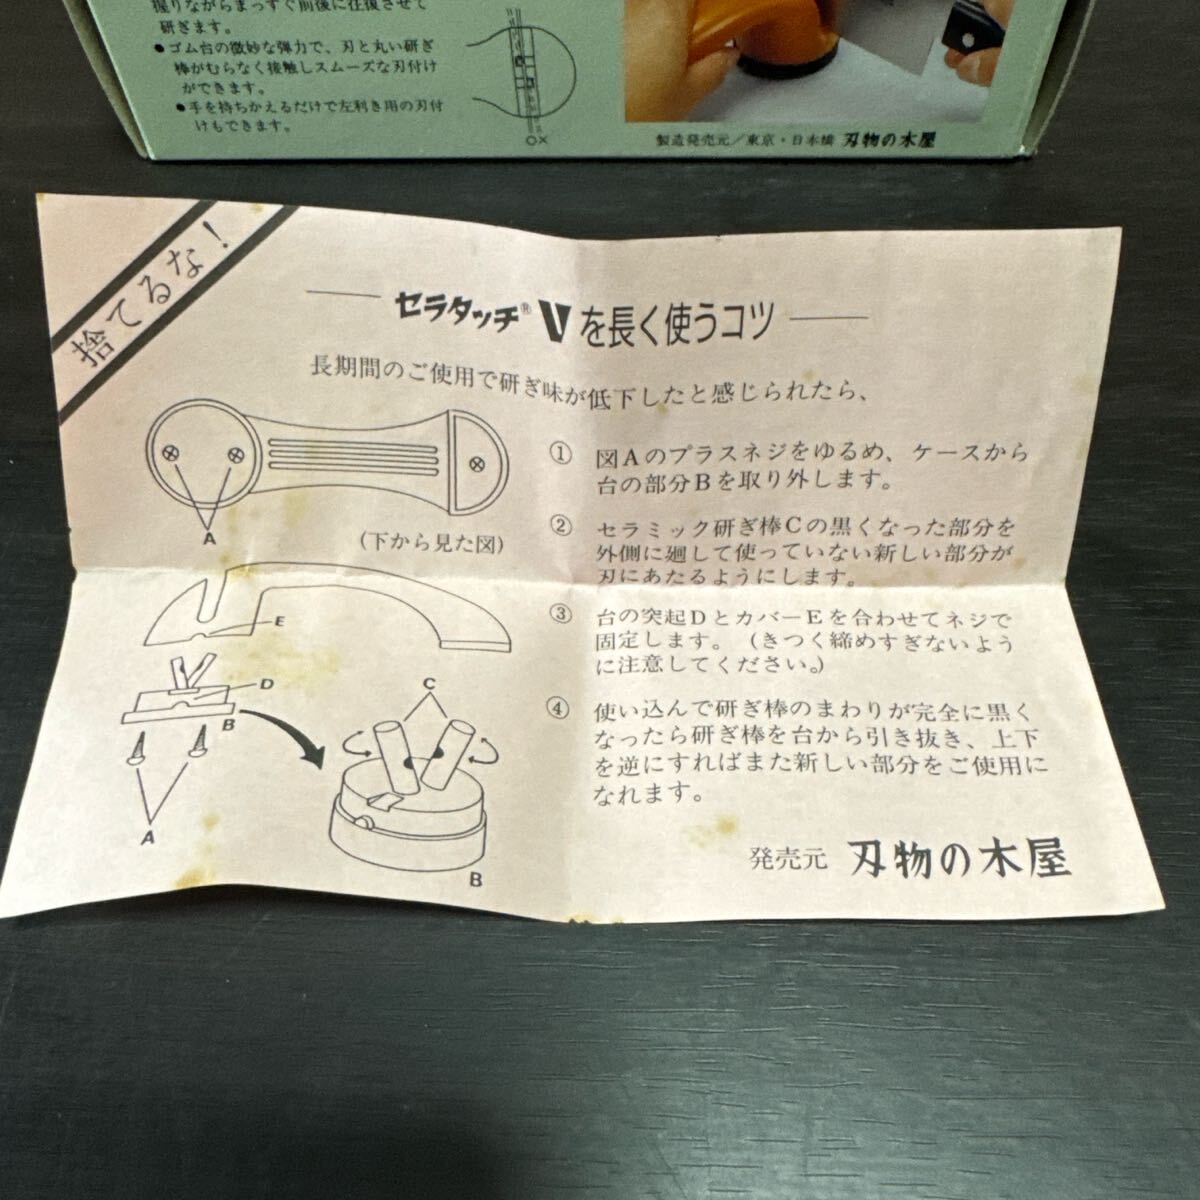 握りながらまっすぐ前後に往復させて
研ぎます。
●ゴム台の微妙な弾力で、刃と丸い研ぎ
棒がむらなく接触しスムーズな刃付け
ができます。
●手を持ちかえるだけで左利き用の刃付
けもできます。
○×
製造発売元／東京・日本橋 刃物の木屋
捨てるな！
セラタッチ® Vを長く使うコツ
長期間のご使用で研ぎ味が低下したと感じられたら、
① 図Aのプラスネジをゆるめ、ケースから
台の部分Bを取り外します。
② セラミック研ぎ棒Cの黒くなった部分を
外側に廻して使っていない新しい部分が
刃にあたるようにします。
③ 台の突起DとカバーEを合わせてネジで
固定します。（きつく締めすぎないよう
に注意してください。）
④ 使い込んで研ぎ棒のまわりが完全に黒く
なったら研ぎ棒を台から引き抜き、上下
を逆にすればまた新しい部分をご使用に
なれます。
発売元 刃物の木屋
A
(下から見た図)
E
D
B
A
C
B